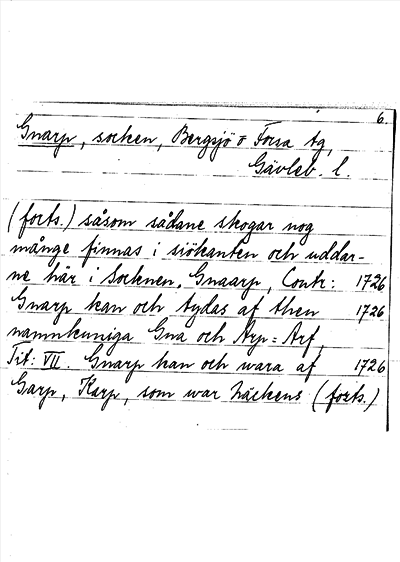 6.
Gnarp, socken, Bergsjö o Forsa tg,
Gävleb. l.
(forts.) såsom sådane skogar nog
många finnas i siökanten och uddar-
ne här i Socknen. Gnaarp, Contr: 1726
Gnarp kan och tydas af then 1726
namnkuniga Gna och Arp = Arf,
Tit: VII. Gnarp kan och wara af 1726
Garp, Karp, som war Häckens (forts.)